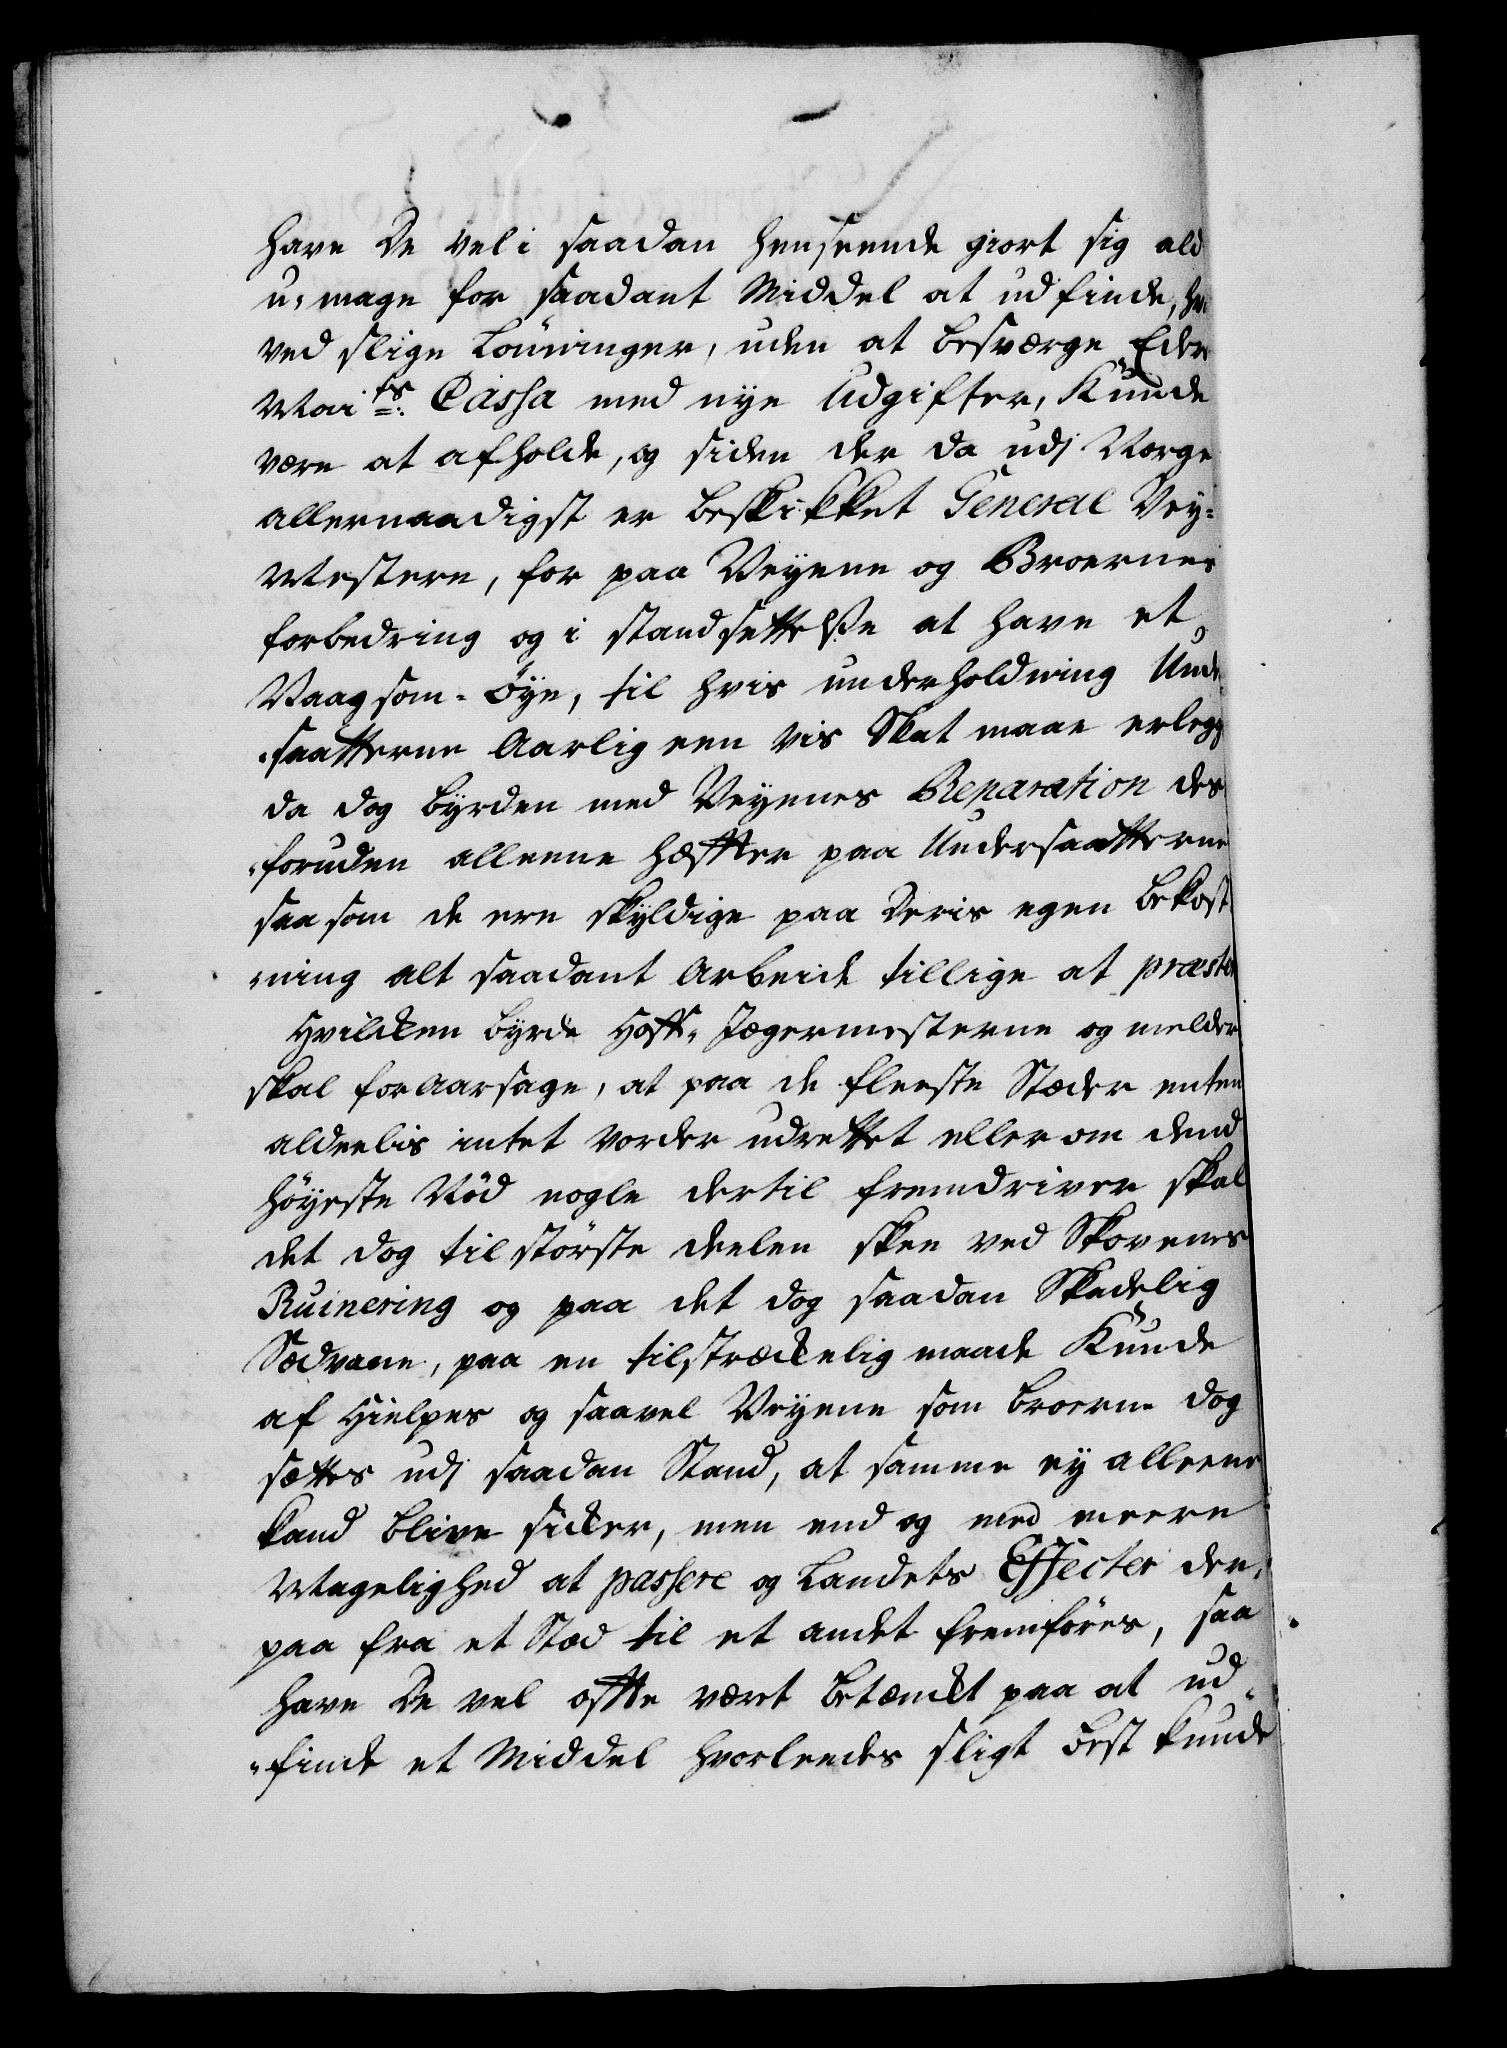 have De vel i saadan henseende giort sig ald
u-mage for saadant Middel at udfinde, hvor
ved slige Lönninger, uden at besværge Eders
Maj.ts Cassa med nye Udgifter, Kunde
være at afholde, og siden der da udj Norge
allernaadigst er beskikket General Vey-
Mestere, for paa Veyene og Broernes
forbedring og i standsettelsse at have et
Vaagsom-Öye, til hvis underholdning Unde
-saatterne Aarlig een vis Skat maae erlegg
da dog Byrden med Veyenes Reparation des
-foruden alleene hæffter paa Undersaatterne
saasom de ere skyldige paa deris egen bekost
-ning alt saadant Arbeide tillige at præster
Hvilcken byrde Hoff-Jægermesterne og melder
skal foraarsage, at paa de fleeste Stæder enten
aldeelis intet vorder udrettet eller om dend
höyeste Nöd nogle dertil fremdriver skal
det dog til störste deelen skee ved Skovenes
Ruinering og paa det dog saadan Skadelig
Sædvane, paa en tilstræckelig maade Kunde
af Hielpes og saavel Veyene som broerne dog
sættes udj saadan Stand, at samme ey alleene
kand blive sicker, men end og med meere
Magelighed at passere og Landets Effecter der-
paa fra et Stæd til et andet fremföres, saa
have De vel offte været betænckt paa at ud
-finde et Middel hvorleedes sligt best kunde